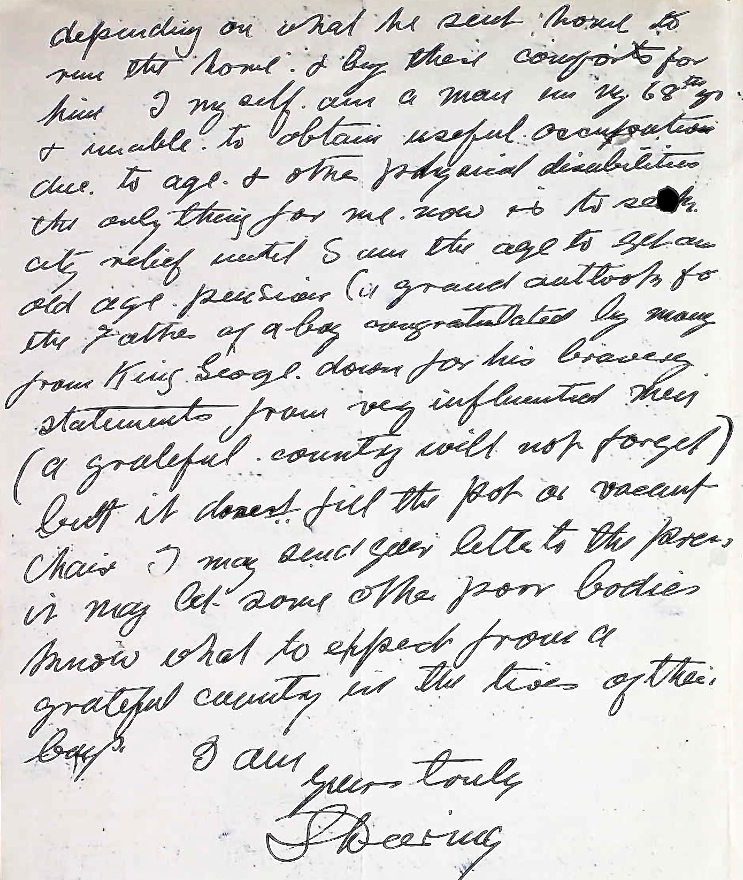 depending on what he sent home to
run the home. & buy these comforts for
him I myself. am a man in my 68th yr
& unable. to obtain useful. occupation
due. to age. & other physical disabilities
the only thing for me. now is to seek.
city relief until I am the age to get an
old age. pension (a grand outlook fo
the Father of a boy congratulated by many
from King George. down for his bravery
statements from very influential men
(a grateful. country will not forget)
but it doesnt.. fill the pot or vacant
chair I may send your letter to the press
it may let some other poor bodies
know what to expect from a
grateful country in the lives of their
boys. I am
yours truly
Dearing